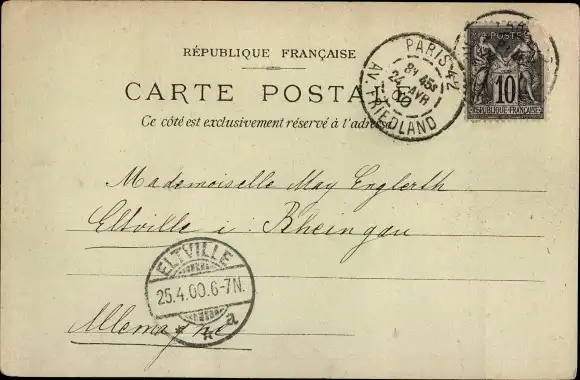 RÉPUBLIQUE FRANÇAISE
CARTE POSTALE
Ce côté est exclusivement réservé à l'adresse
PARIS-42
8E 45S
24 AVR
00
AV. FRIEDLAND
POSTE
10
REPUBLIQUE FRANÇAISE
Mademoiselle May Englerth
Eltville i. Rheingau
ELTVILLE
25.4.00.6-7N.
a
Allemagne